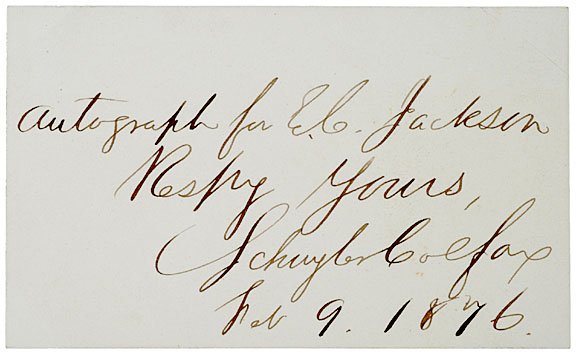 Autograph for E.C. Jackson
Respy Yours,
Schuyler Colfax
Feb 9. 1876.